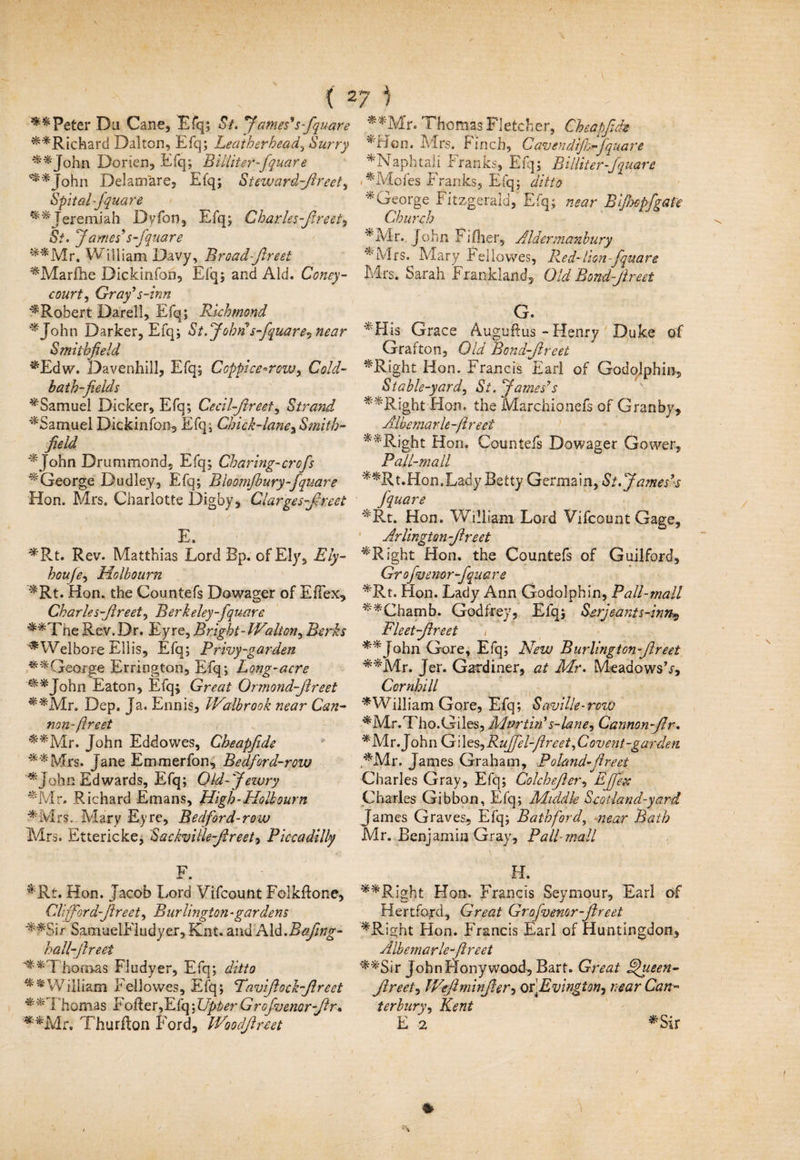 ( 27 )
**Peter Du Cane, Eſq; St. James's-ſquare
**Richard Dalton, Eſq; Leatherhead, Surry
**John Dorien, Eſq; Billiter-ſquare
**John Delamare, Eſq; Steward-ſtreet,
Spital-ſquare
**Jeremiah Dyſon, Eſq; Charles-ſtreet,
St. James's-ſquare
**Mr. William Davy, Broad-ſtreet
*Marſhe Dickinſon, Eſq; and Ald. Coney-
court, Gray's-inn
*Robert Darell, Eſq; Richmond
*John Darker, Eſq; St. John's-ſquare, near
Smithfield
*Edw. Davenhill, Eſq; Coppice-row, Cold-
bath-fields
*Samuel Dicker, Eſq; Cecil-ſtreet, Strand
*Samuel Dickinſon, Eſq; Chick-lane, Smith-
field
*John Drummond, Eſq; Charing-croſs
*George Dudley, Eſq; Bloomſbury-ſquare
Hon. Mrs. Charlotte Digby, Clarges-ſtreet
E.
*Rt. Rev. Matthias Lord Bp. of Ely, Ely-
houſe, Holbourn
*Rt. Hon. the Counteſs Dowager of Eſſex,
Charles-ſtreet, Berkeley-ſquare
**The Rev. Dr. Eyre, Bright-Walton, Berks
*Welbore Ellis, Eſq; Privy-garden
**George Errington, Eſq; Long-acre
**John Eaton, Eſq; Great Ormond-ſtreet
**Mr. Dep. Ja. Ennis, Walbrook near Can-
non-ſtreet
**Mr. John Eddowes, Cheapſide
**Mrs. Jane Emmerſon, Bedford-row
*John Edwards, Eſq; Old-Jewry
*Mr. Richard Emans, High-Holbourn
*Mrs. Mary Eyre, Bedford-row
Mrs. Ettericke, Sackville-ſtreet, Piccadilly
F.
*Rt. Hon. Jacob Lord Viſcount Folkſtone,
Clifford-ſtreet, Burlington-gardens
**Sir Samuel Fludyer, Knt. and Ald. Baſing-
hall-ſtreet
**Thomas Fludyer, Eſq; ditto
**William Fellowes, Eſq; Taviſtock-ſtreet
**Thomas Foſter, Eſq; Upper Groſvenor-ſtr.
**Mr. Thurſton Ford, Woodſtreet
**Mr. Thomas Fletcher, Cheapſide
*Hon. Mrs. Finch, Cavendiſh-ſquare
*Naphtali Franks, Eſq; Billiter-ſquare
*Moſes Franks, Eſq; ditto
*George Fitzgerald, Eſq; near Biſhopſgate
Church
*Mr. John Fiſher, Aldermanbury
*Mrs. Mary Fellowes, Red-lion-ſquare
Mrs. Sarah Frankland, Old Bond-ſtreet
G.
*His Grace Auguſtus-Henry Duke of
Grafton, Old Bond-ſtreet
*Right Hon. Francis Earl of Godolphin,
Stable-yard, St. James's
**Right Hon. the Marchioneſs of Granby,
Albemarle-ſtreet
**Right Hon. Counteſs Dowager Gower,
Pall-mall
**Rt. Hon. Lady Betty Germain, St. James's
ſquare
*Rt. Hon. William Lord Viſcount Gage,
Arlington-ſtreet
*Right Hon. the Counteſs of Guilford,
Groſvenor-ſquare
*Rt. Hon. Lady Ann Godolphin, Pall-mall
**Chamb. Godfrey, Eſq; Serjeants-inn,
Fleet-ſtreet
**John Gore, Eſq; New Burlington-ſtreet
**Mr. Jer. Gardiner, at Mr. Meadows's,
Cornhill
*William Gore, Eſq; Saville-row
*Mr. Tho. Giles, Martin's-lane, Cannon-ſtr.
*Mr. John Giles, Ruſſel-ſtreet, Covent-garden
*Mr. James Graham, Poland-ſtreet
Charles Gray, Eſq; Colcheſter, Eſſex
Charles Gibbon, Eſq; Middle Scotland-yard
James Graves, Eſq; Bathford, near Bath
Mr. Benjamin Gray, Pall-mall
H.
**Right Hon. Francis Seymour, Earl of
Hertford, Great Groſvenor-ſtreet
*Right Hon. Francis Earl of Huntingdon,
Albemarle-ſtreet
**Sir John Honywood, Bart. Great Queen-
ſtreet, Weſtminſter, or Evington, near Can-
terbury, Kent
E 2 *Sir